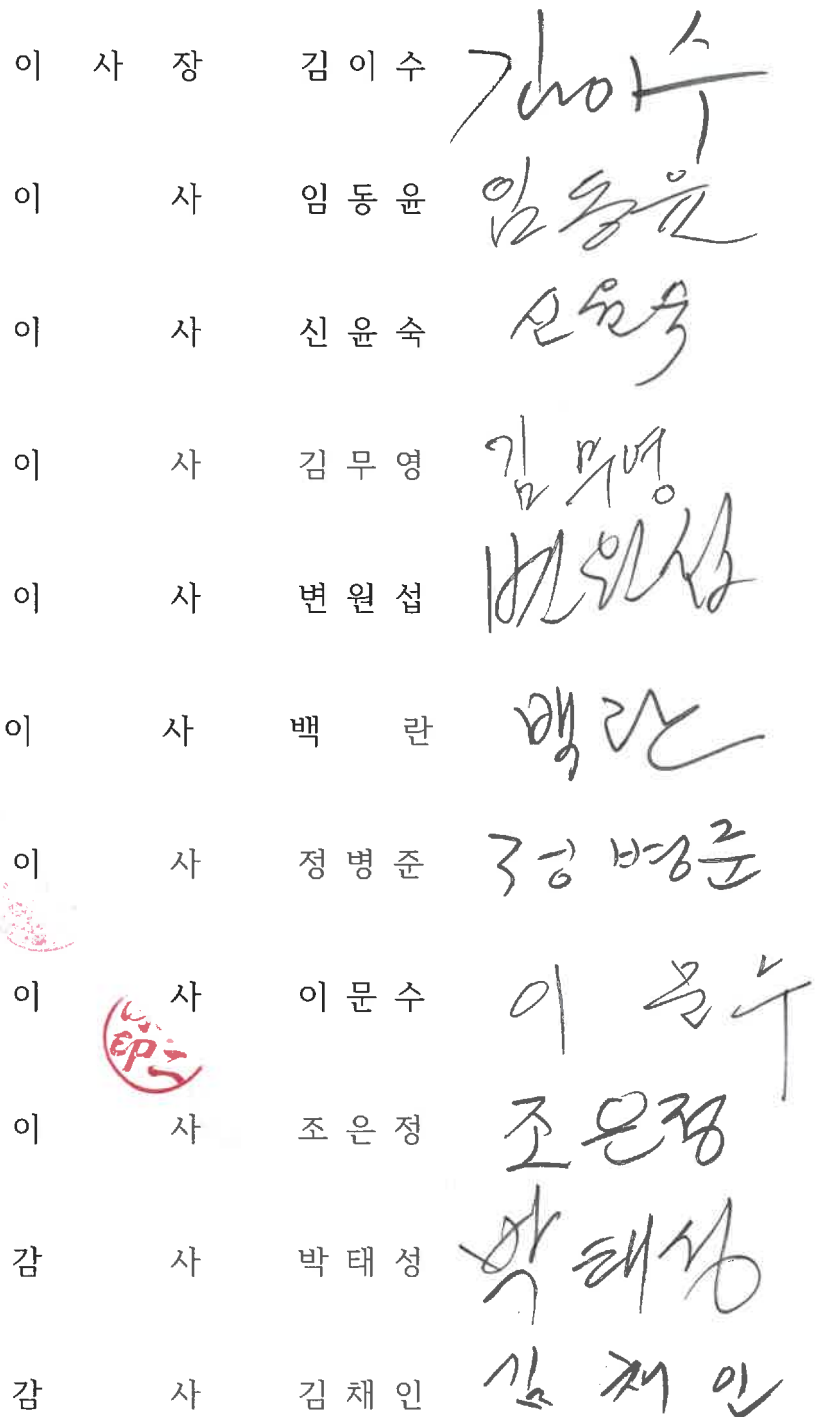 이 사 장 김 이 수 김이수
이 사 임 동 윤 임동윤
이 사 신 윤 숙 신윤숙
이 사 김 무 영 김무영
이 사 변 원 섭 변원섭
이 사 백 란 백란
이 사 정 병 준 정병준
이 사 이 문 수 이 문수
이 사 조 은 정 조은정
감 사 박 태 성 박태성
감 사 김 채 인 김채인